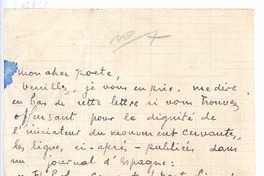 no 7
mon cher poete,
Veuillez, je vous en prie, me dire,
en bas de cette lettre si vous trouvez
offensant pour la dignité de
l'initiateur du monument Cervantes,
les lignes, ci-après, publiées dans
un journal d'Espagne: